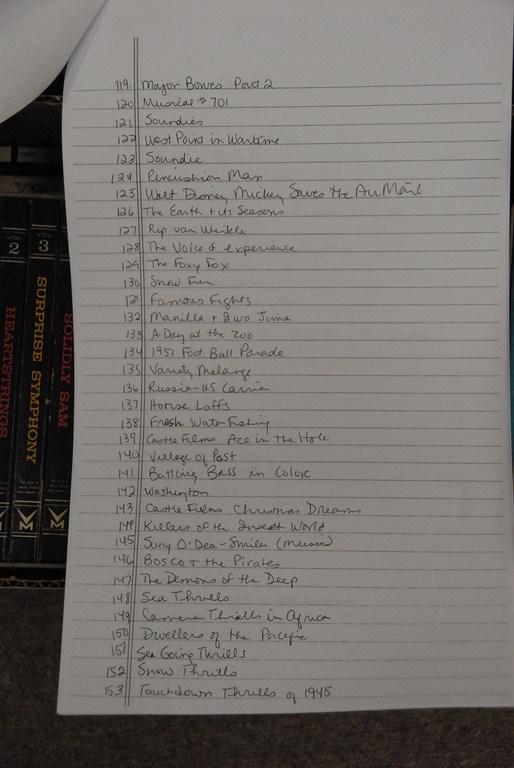 119 Major Bowes Part 2
120 Musical # 701
121 Soundies
122 West Point in Wartime
123 Soundie
124 Pincushion Man
125 Walt Disney Mickey Saves the Air Mail
126 The Earth + its Seasons
127 Rip van Winkle
128 The Voice of experience
129 The Foxy Fox
130 Snow Fun
121 Famous Fights
132 Manilla + Iwo Jima
133 A Day at the Zoo
134 1957 Foot Ball Parade
135 Variety Melange
136 Russia-US
137 House Laffs
138 Fresh Water Fishing
139 Castle Films Ace in the Hole
140 Village of Past
141 Battling Bass in Color
142 Washington
143 Castle Films Christmas Dreams
144 Killers of the Insect World
145 Suny O'Dea-Smiles (music)
146 Bosco + the Pirates
147 The Demons of the Deep
148 Sea Thrills
149 Camera Thrills in Africa
150 Dwellers of the Pacific
151 Sea Going Thrills
152 Snow Thrills
153 Touchdown Thrills of 1945
VOL. 2
HEARTSTRINGS
VOL. 3
SURPRISE SYMPHONY
SOLIDLY SAM